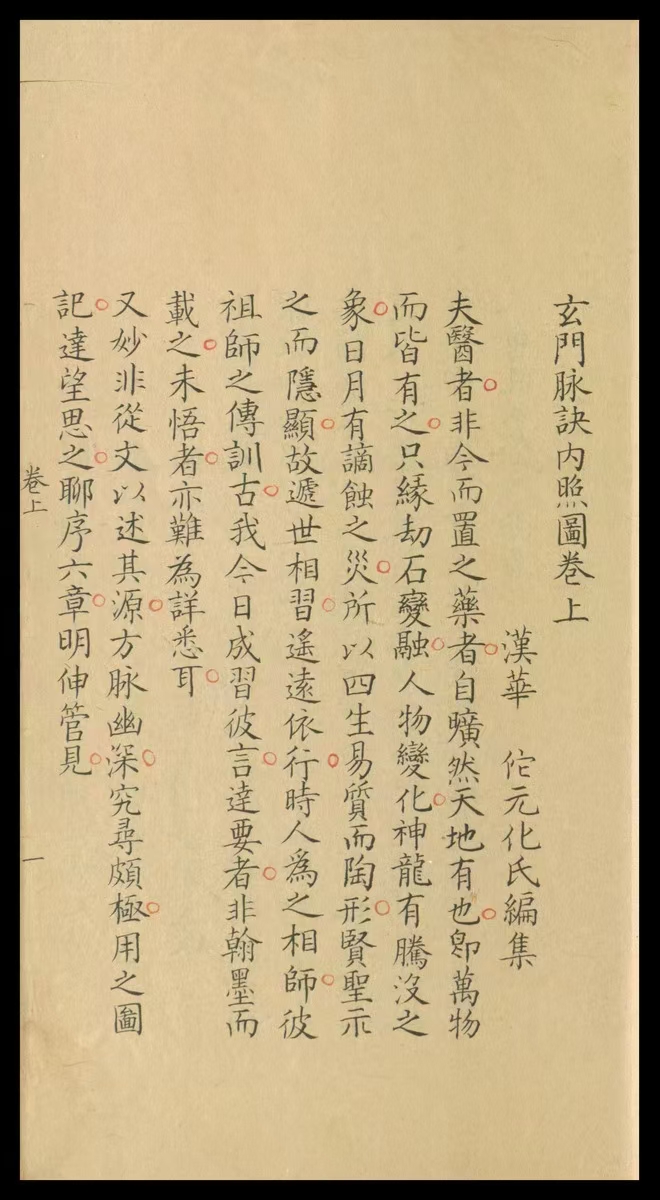 玄門脉訣内照圖卷上
漢華 佗元化氏編集
夫醫者非今而置之藥者自曠然天地有也卽萬物
而皆有之只緣劫石變融人物變化神龍有騰沒之
象日月有謫蝕之災所以四生易質而陶形賢聖示
之而隱顯故遞世相習遙遠依行時人爲之相師彼
祖師之傳訓古我今日成習彼言達要者非翰墨而
載之未悟者亦難為詳悉耳
又妙非從文以述其源方脉幽深究尋頗極用之圖
記達望思之聊序六章明伸管見
卷上
一